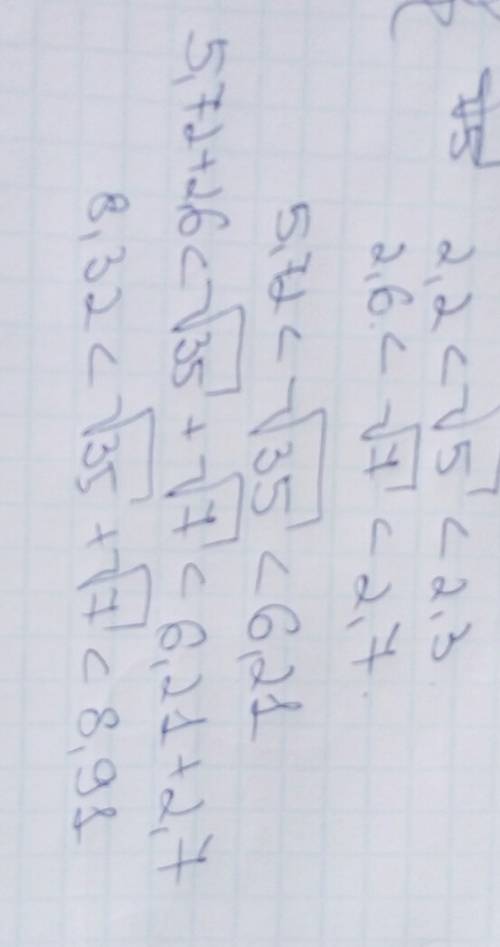 √15
2,2 < √5 < 2,3
2,6 < √7 < 2,7
5,72 < √35 < 6,21
5,72+2,6 < √35 + √7 < 6,21+2,7
8,32 < √35 + √7 < 8,91